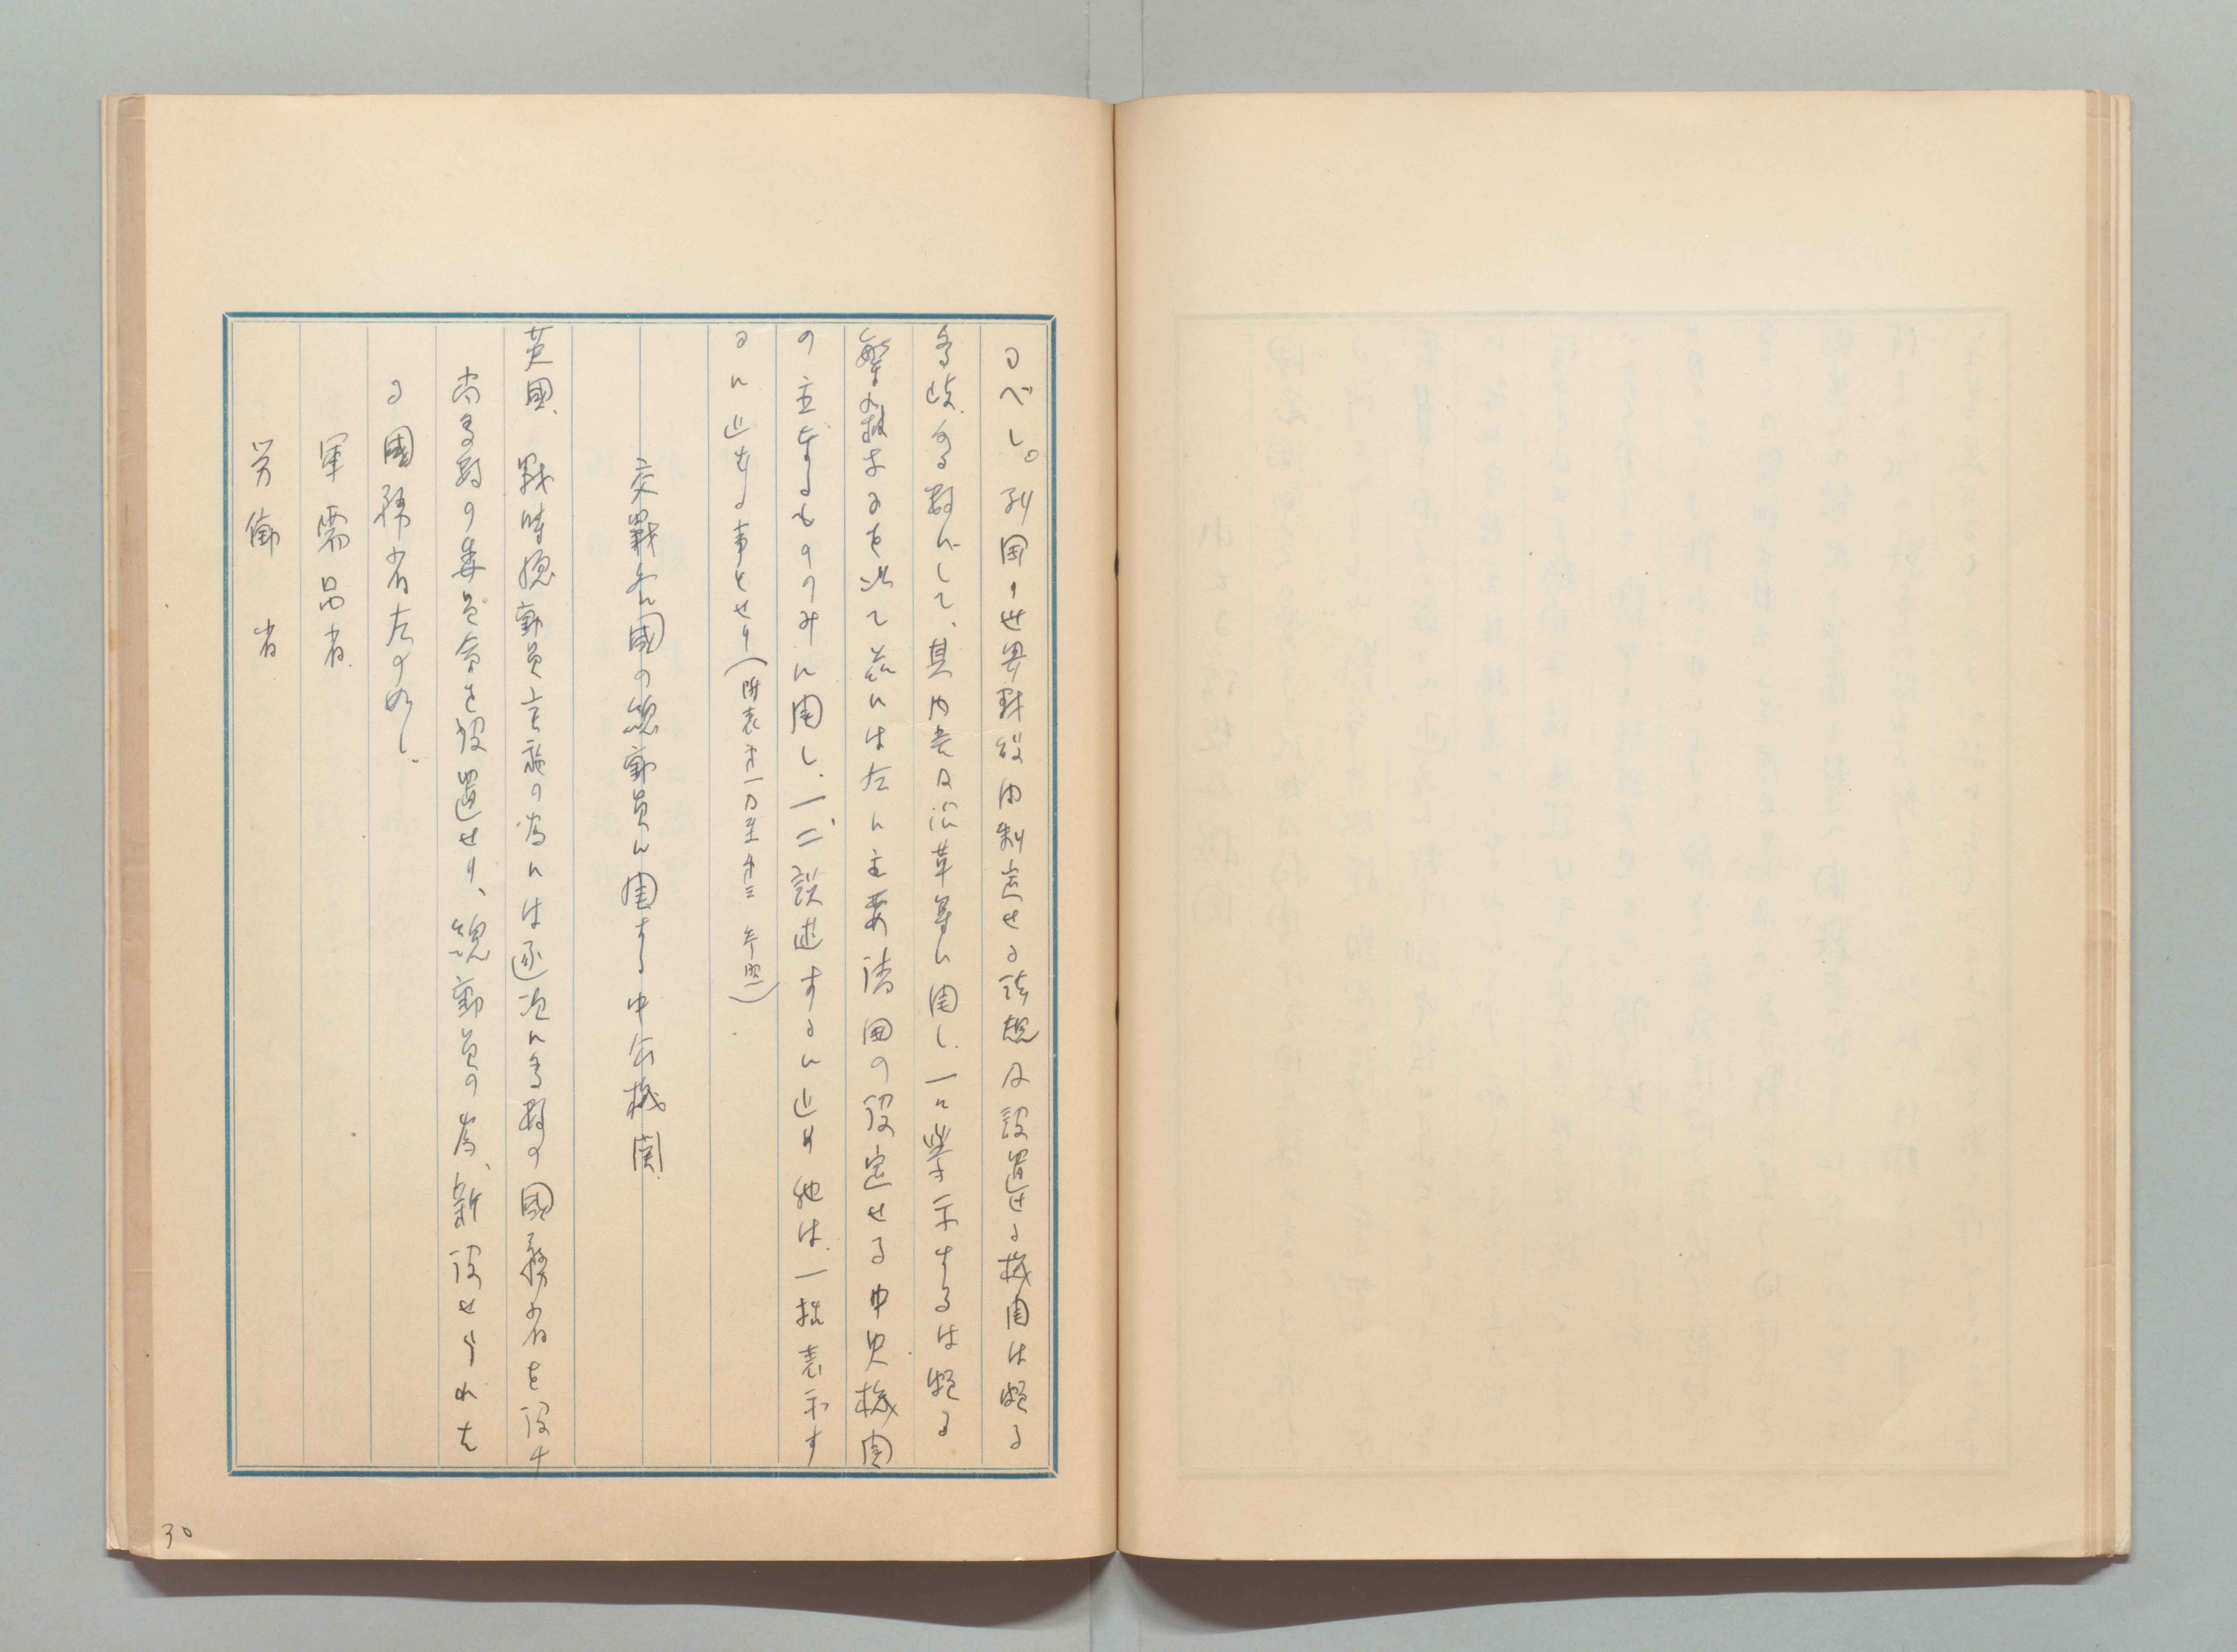 るべし。列国の世界戦役由制定せる法規及設置せる機関は頗る
多岐多数にして、其内容及沿革等に関し一々挙示するは頗る
繁雑なるを以て茲には左に主要諸国の設定せる中央機関
の主なるもののみに関し、一二談述するに止め他は一括表示す
るに止むる事とせり(附表第一乃至第三参照)
交戦各国の総動員に関する中央機関
英國、戦時総動員実施の為には逐次に多数の國務省を設け
尚多数の委員会を設置せり、総動員の為、新設せられた
る國務省左の如し.
軍需品省.
労働省
30